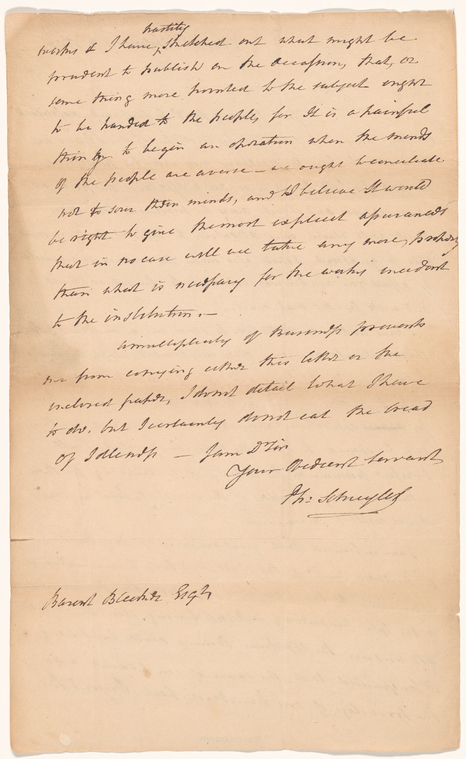 hastily
works & I have, sketched out what might be
prudent to publish on the occassion, that, or
some thing more pointed to the subject ought
to be handed to the people, for It is a painful
thing to begin an operation when the minds
of the people are averse — we ought to conciliate
not to sour their minds, and I believe It would
be right to give the most explicit assurances
that in no case will we take any more property
than what is necessary for the works incident
to the institution. —
a multiplicity of business prevents
me from copying either this letter or the
inclosed paper, I do not detail what I have
to do. but I certainly do not eat the bread
of Idleness — I am D Sir
Your Obedient Servant
Ph: Schuyler
Barent Bleecker Esqr